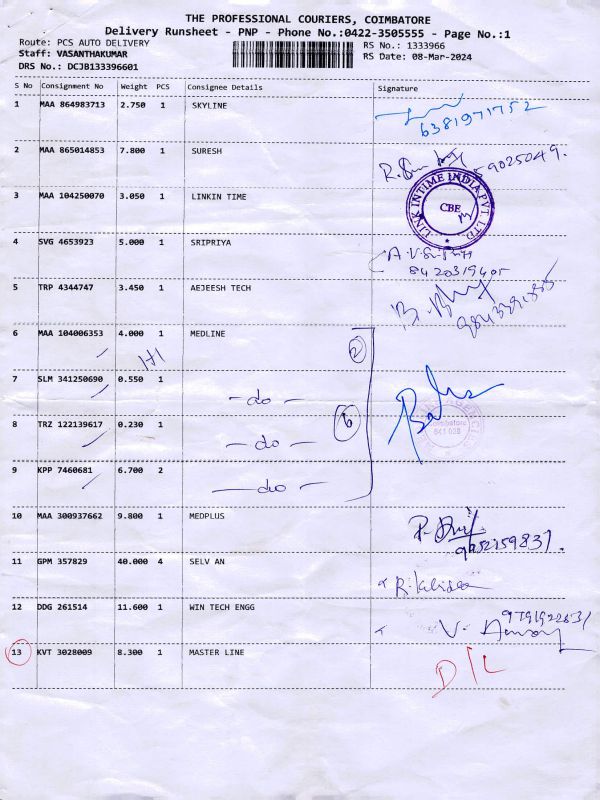 THE PROFESSIONAL COURIERS, COIMBATORE
Delivery Runsheet - PNP - Phone No.:0422-3505555 - Page No.:1
Route: PCS AUTO DELIVERY RS No.: 1333966
Staff: VASANTHAKUMAR RS Date: 08-Mar-2024
DRS No.: DCJB133396601
S No Consignment No Weight PCS Consignee Details Signature
1 MAA 864983713 2.750 1 SKYLINE
6381971752
2 MAA 865014853 7.800 1 SURESH
9025049.
3 MAA 104250070 3.050 1 LINKIN TIME
LINK INTIME INDIA PVT. LTD. CBE
4 SVG 4653923 5.000 1 SRIPRIYA
5 TRP 4344747 3.450 1 AEJEESH TECH
6 MAA 104006353 4.000 1 MEDLINE
2
7 SLM 341250690 0.550 1 -do-
8 TRZ 122139617 0.230 1 -do-
9 KPP 7460681 6.700 2 -do-
10 MAA 300937662 9.800 1 MEDPLUS
11 GPM 357829 40.000 4 SELV AN
12 DDG 261514 11.600 1 WIN TECH ENGG
13 KVT 3028009 8.300 1 MASTER LINE
D/L